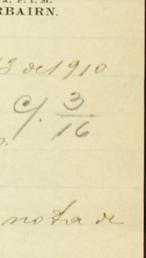 RBAIRN.
3 de 1910
c/. 3/16
nota de